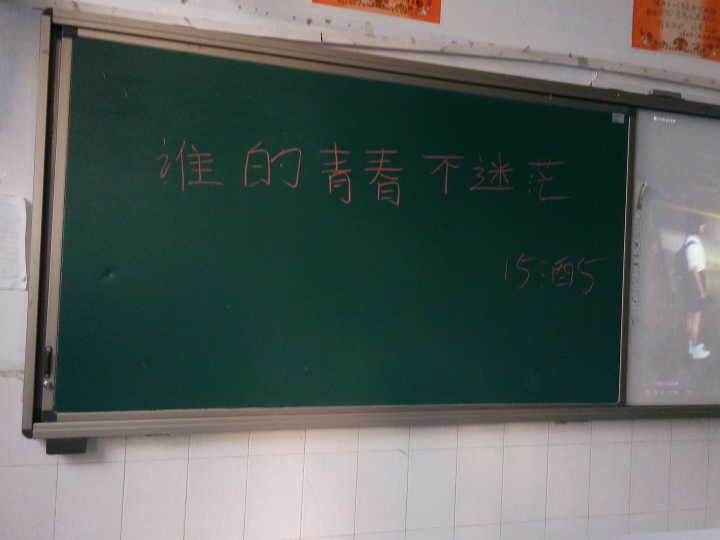 谁的青春不迷茫
15酒5